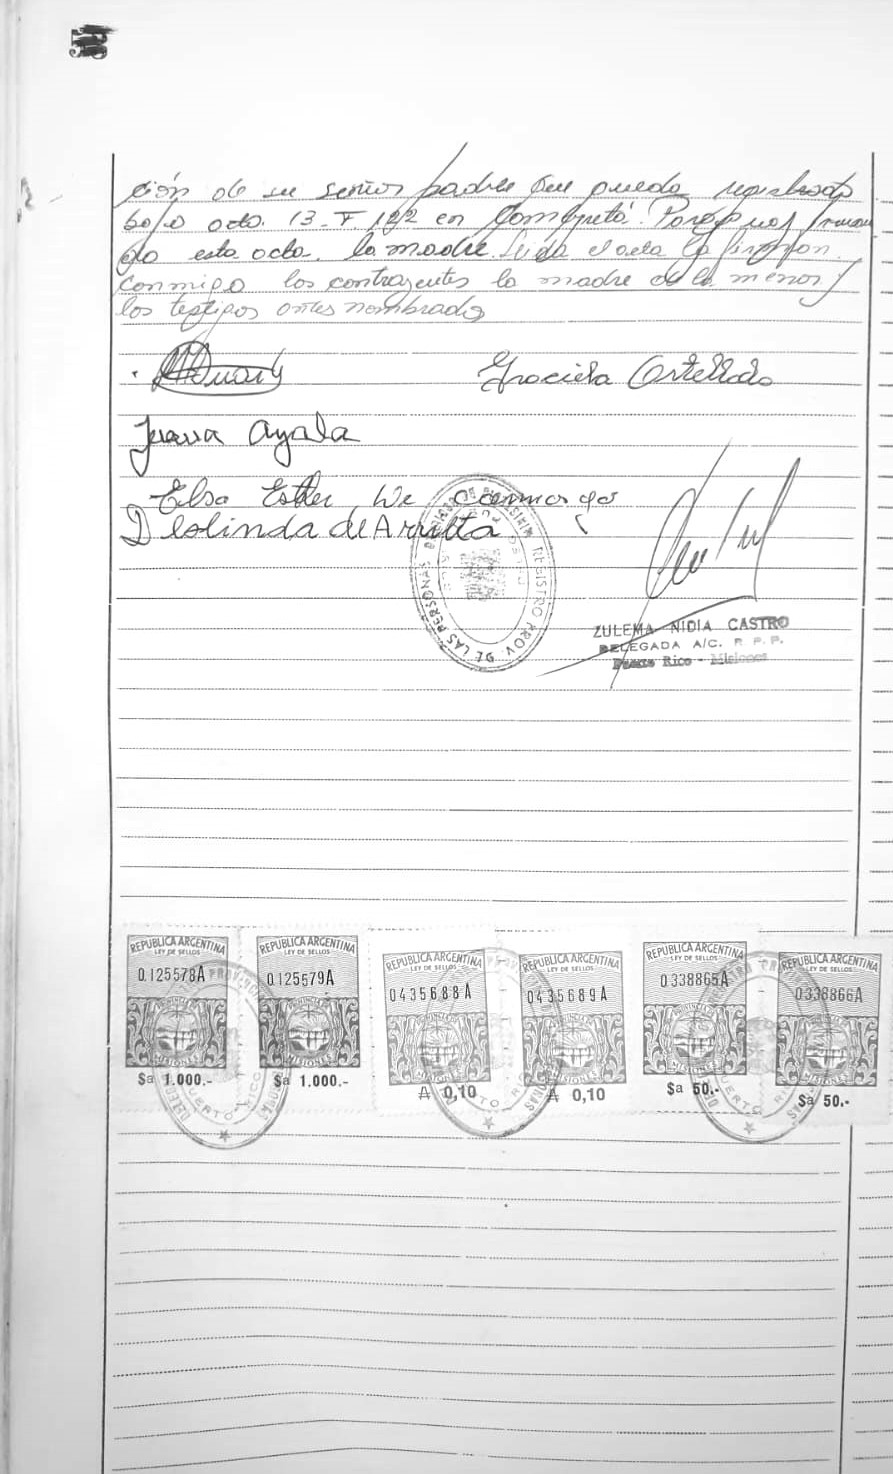 ción de su señor padre que queda registrado
bajo acta 13-T. 122 en
do esta acta. la madre. Leida el acta la firman
conmigo los contrayentes la madre de la menor y
los testigos antes nombrados
Graciela
Juana Ayala
Elsa Esther de
Deolinda de Arrutta
REGISTRO PROV. DE LAS PERSONAS
ZULEMA NIDIA CASTRO
DELEGADA A/C. R. P. P.
Puerto Rico - Misiones
REPUBLICA ARGENTINA REPUBLICA ARGENTINA REPUBLICA ARGENTINA REPUBLICA ARGENTINA REPUBLICA ARGENTINA REPUBLICA ARGENTINA
LEY DE SELLOS LEY DE SELLOS LEY DE SELLOS LEY DE SELLOS LEY DE SELLOS LEY DE SELLOS
0.125578A 0.125579A 0435688A 0435689A 0.338865A 0.338866A
MISIONES MISIONES MISIONES MISIONES MISIONES MISIONES
$a 1.000.- $a 1.000.- ₳ 0,10 ₳ 0,10 $a 50.- $a 50.-
PUERTO RICO